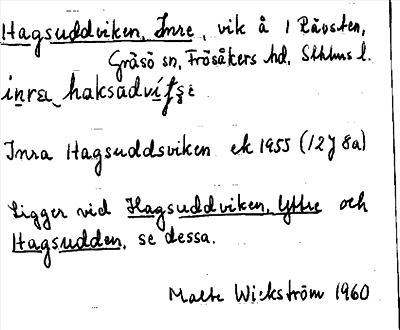 Hagsuddviken, Inre, vik å 1 Rävsten,
Gräsö sn, Frösåkers hd, Sthlms l.
inra haksadvi
Inra Hagsuddsviken ek 1955 (12J 8a)
Ligger vid Hagsuddviken, Yttre och
Hagsudden, se dessa.
Malte Wickström 1960